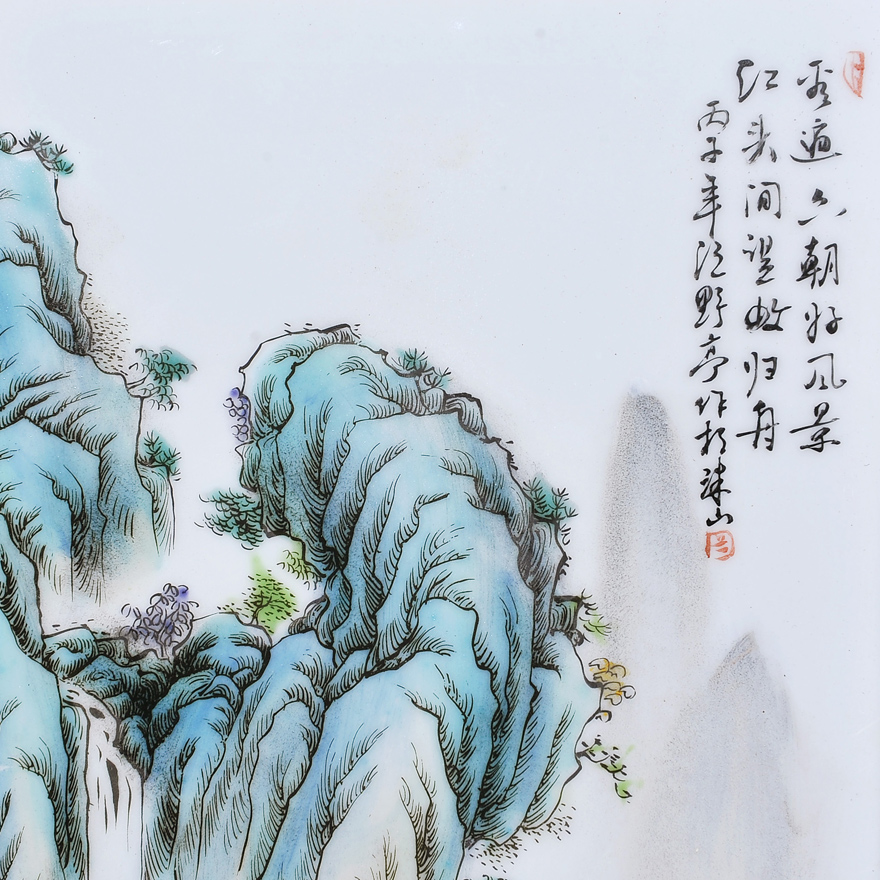 看遍六朝好风景
江头间望数归舟
丙子年汪野亭作於珠山